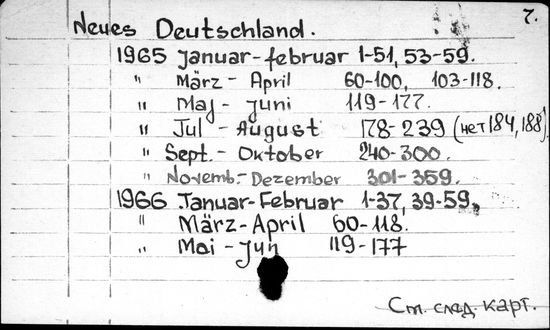 7.
Neues Deutschland.
1965 Januar-februar 1-51, 53-59.
" März - April 60-100, 103-118.
" Maj - Juni 119-177.
" Jul - August 178-239 (нет 184, 188).
" Sept. - Oktober 240-300.
" Novemb.- Dezember 301-359.
1966 Januar-Februar 1-37, 39-59.
" März-April 60-118.
" Mai - Jun 119-177
См. след. карт.